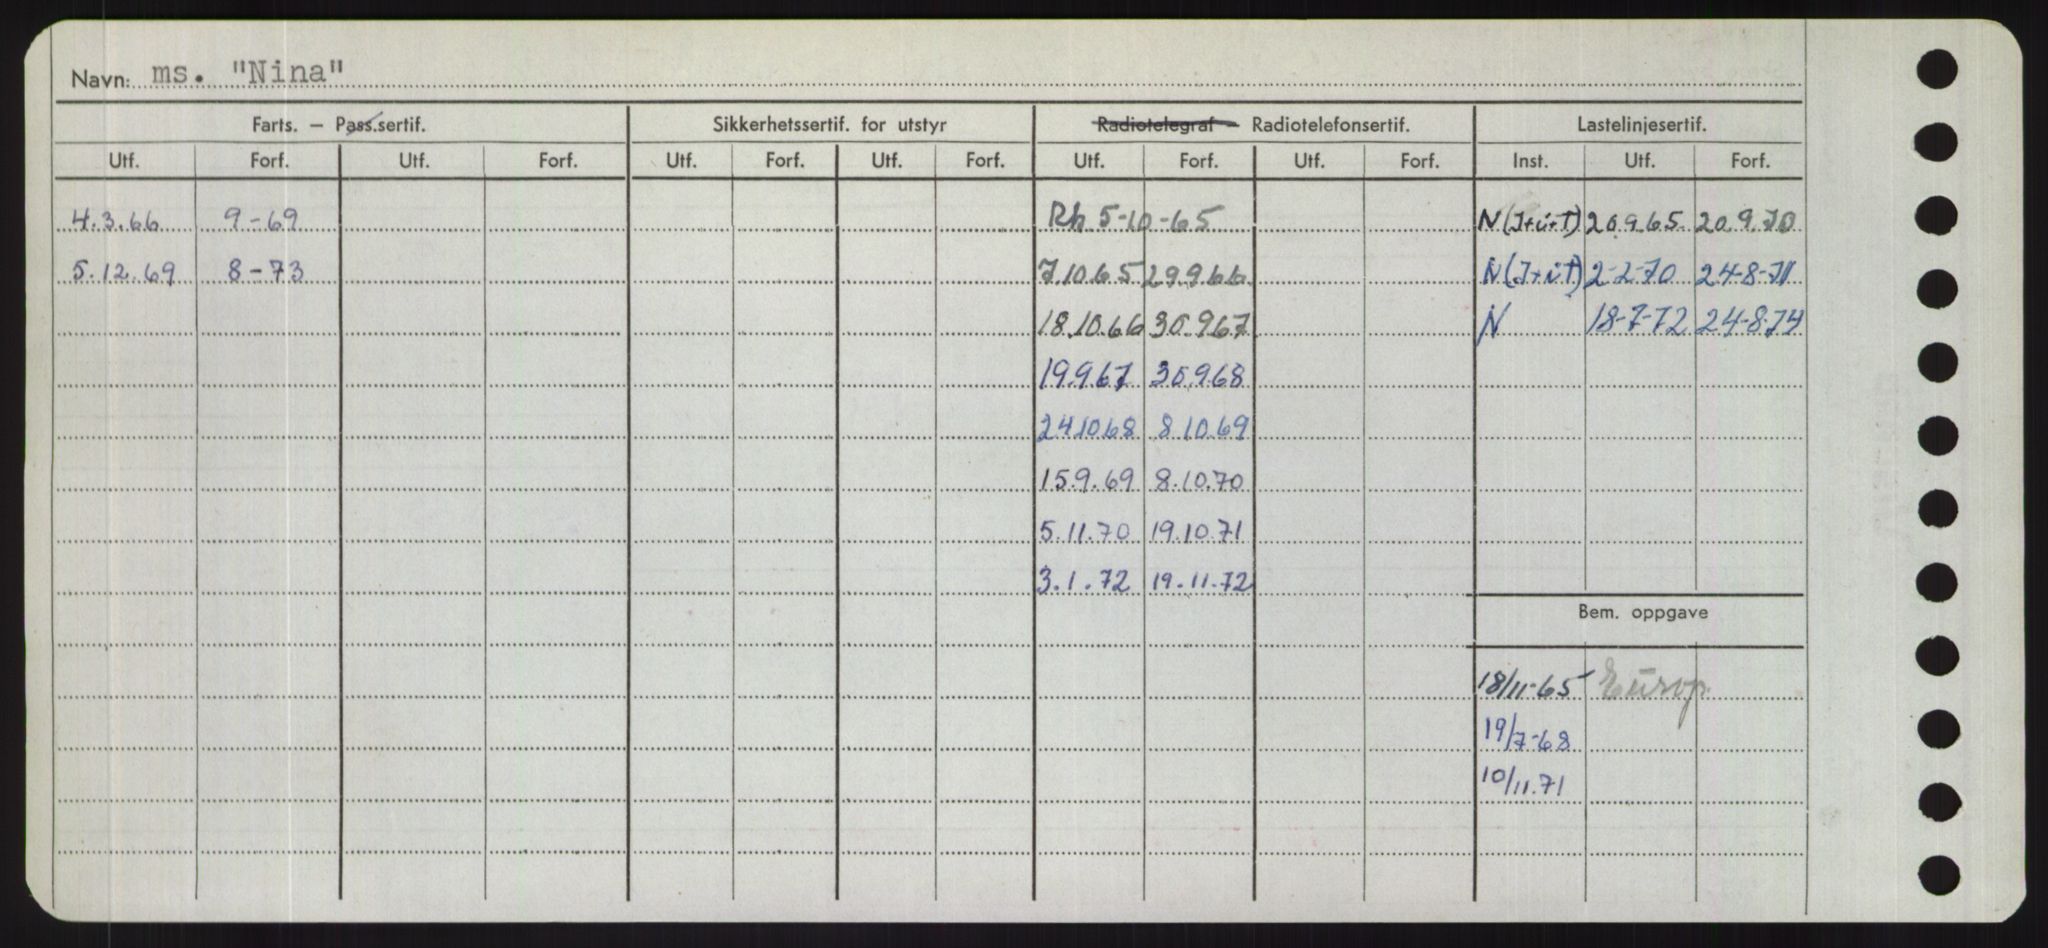 Navn: ms. "Nina"
Farts. – Pass.sertif. Sikkerhetssertif. for utstyr Radiotelegraf – Radiotelefonsertif. Lastelinjesertif.
Utf. Forf. Utf. Forf. Utf. Forf. Utf. Forf. Utf. Forf. Utf. Forf. Inst. Utf. Forf.
4.3.66 9-69 Rh 5-10-65 N(I+u+T) 20.9.65. 20.9.70
5.12.69 8-73 7.10.65 29.9.66 N(I+u+T) 2-2-70 24-8-71
18.10.66 30.9.67 N 18-7-72 24-8-74
19.9.67 30.9.68
24.10.68 8.10.69
15.9.69 8.10.70
5.11.70 19.10.71
3.1.72 19.11.72
Bem. oppgave
18/11-65 Europ.
19/7-68
10/11.71